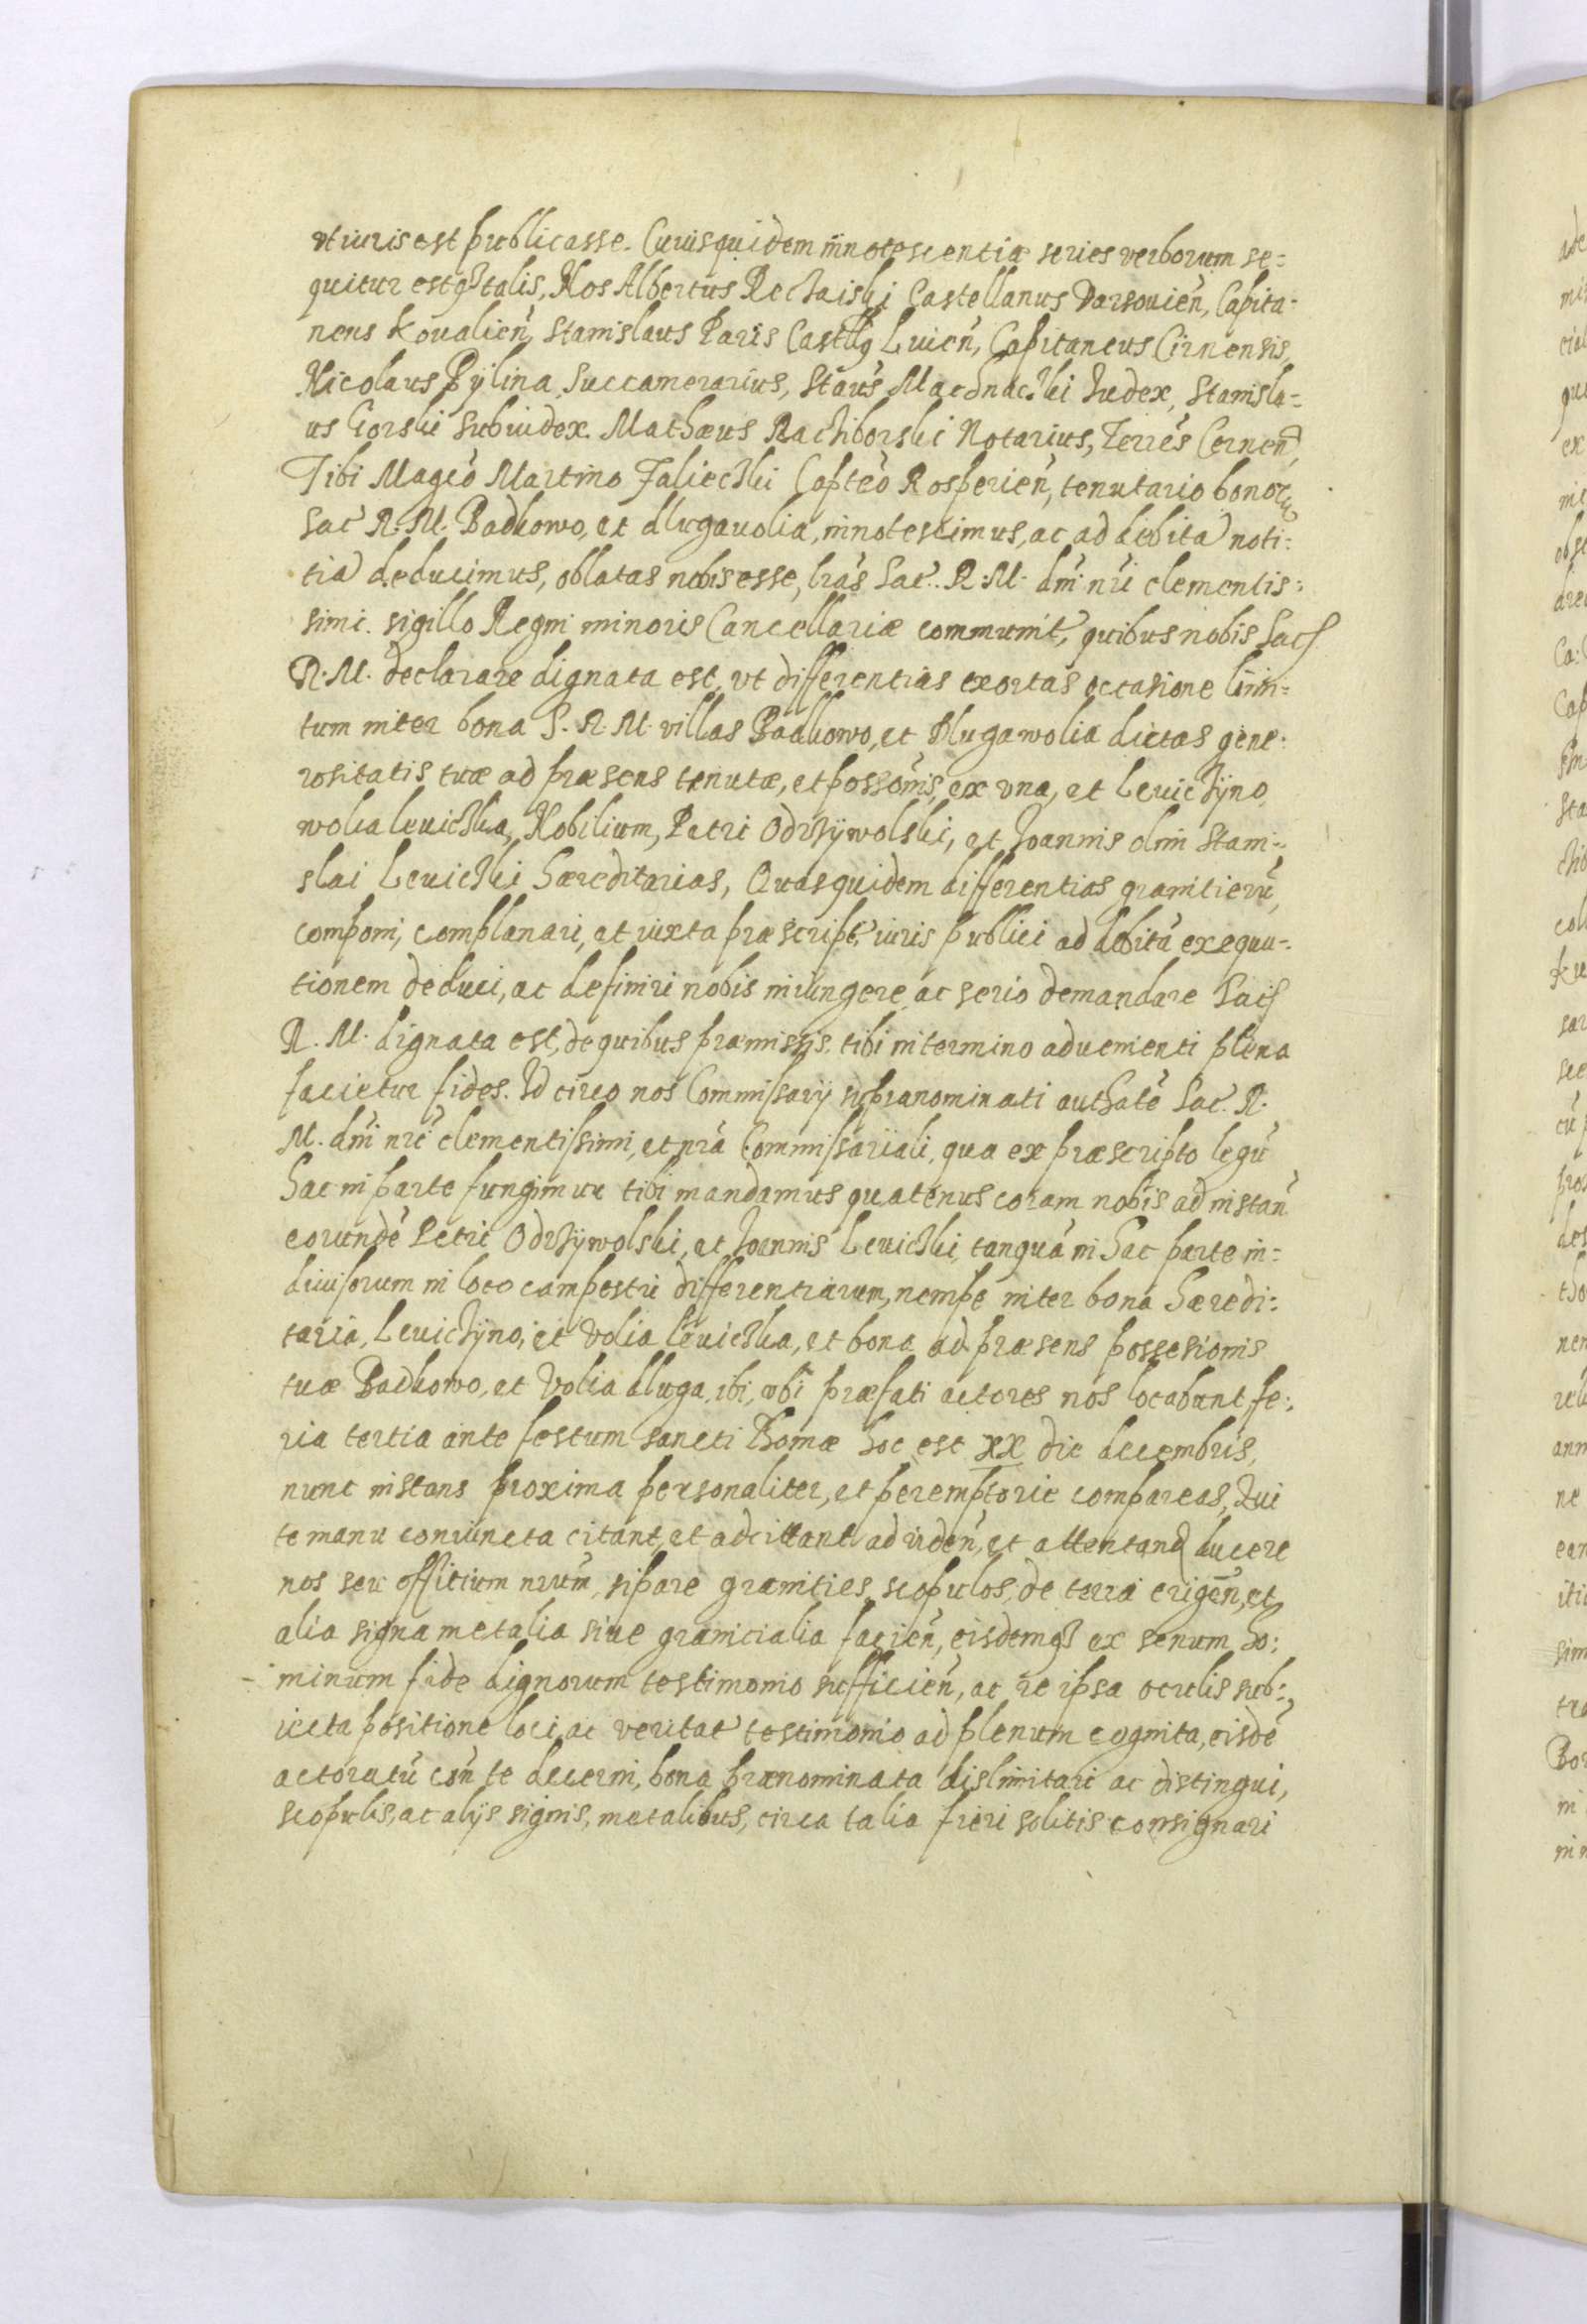 vt iuris est publicasse. Cuius quidem innotescentiæ series verborum se=
quitur estq3 talis, Nos Albertus Rechaiski Castellanus Varsouień, Capita-
neus Koualień, Stanislaus Paris Castellq Luień, Capitaneus Cirnensis,
Nicolaus Pÿlina Succamerarius, Staus Machnaczki Iudex, Stanisla=
us Gorski Subiudex. Mathæus Rachiborski Notarius, Terres Cernen,
Tibi Magco Martino Falieczki Capteo Rosperien, tenutario bonor
Sac R. M. Badkowo, et dlugauolia, innotescimus, ac ad debita noti:
tia deducimus, oblatas nobis esse, lras Sac. R: M. dni nri clementis:
simi. sigillo Regni minoris Cancellariæ communit, quibus nobis Sac
R. M. declarare dignata est, vt differentias exortas occasione limi=
tum inter bona S. R. M. villas Badkowo, et Dlugawolia dictas gene:
rositatis tuæ ad præsens tenutæ, et possonis, ex vna, et Leuiczÿno,
wolia leuiczka, Nobilium, Petri Odrzÿwolski, et Joannis olim Stani:
slai Leuiczki hæreditarias, Quas quidem differentias granicieru,
componi, complanari, et iuxta præscript iuris publici ad debitu exequu=
tionem deduci, ac definiri nobis iniungere ac serio demandare Sac
R. M. dignata est, de quibus præmissis, tibi in termino aduenienti plena
facietur fides. Id circo nos Commissarij supranominati authate Sac. R.
M. dni nri clementissimi, et nra Commissariali, qua ex præscripto legu
hac in parte fungimur tibi mandamus quatenus coram nobis ad instan
eorunde Petri Odrzÿwolski, et Joannis Leuiczki, tanqua in hac parte in=
diuisorum in loco campestri differentiarum, nempe inter bona hæredi:
taria, Leuiczÿno, et Volia leuiczka, et bona ad præsens possesionis
tuæ Badkowo, et Volia dluga, ibi, vbi præfati actores nos locabunt, fe:
ria tertia ante festum sancti Thomæ hoc est xx die decembris,
nunc instans proxima personaliter, et peremptorie compareas, Qui
te manu coniuncta citant, et adcittant ad viden, et attentand ducere
nos seu officium nrum, sipare granities, scopulos, de terra erigen, et
alia signa metalia siue granicialia facien, eisdemq3 ex senum ho:
minum fide dignorum testimonio sufficien, ac re ipsa oculis sub:
iecta positione loci, ac veritat testimonio ad plenum cognita, eisde
actoratu con te decerni, bona prænominata dislimitari ac distingui,
scopulis, ac alijs signis, metalibus, circa talia fieri solitis consignari